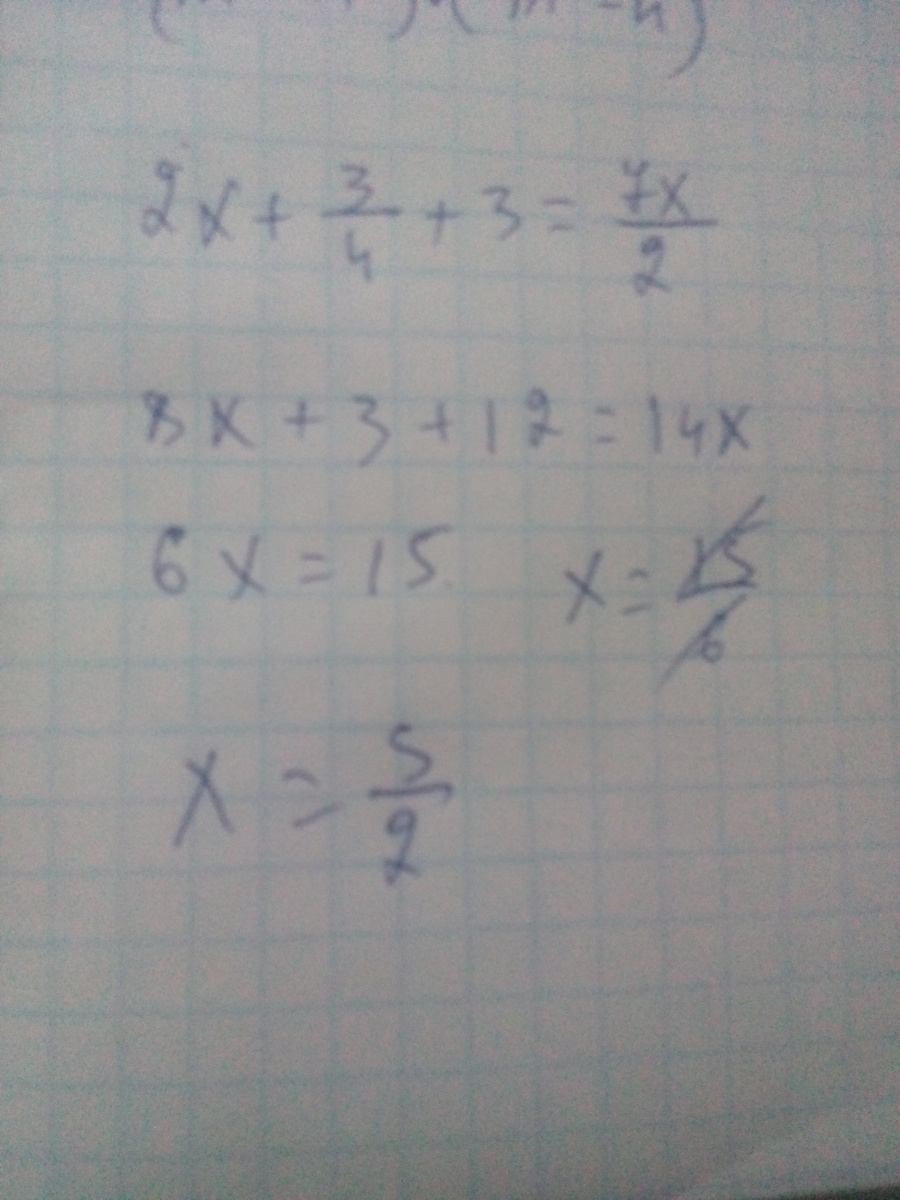 2x + 3/4 + 3 = 7x/2
8x + 3 + 12 = 14x
6x = 15 x = 15/6
x = 5/2